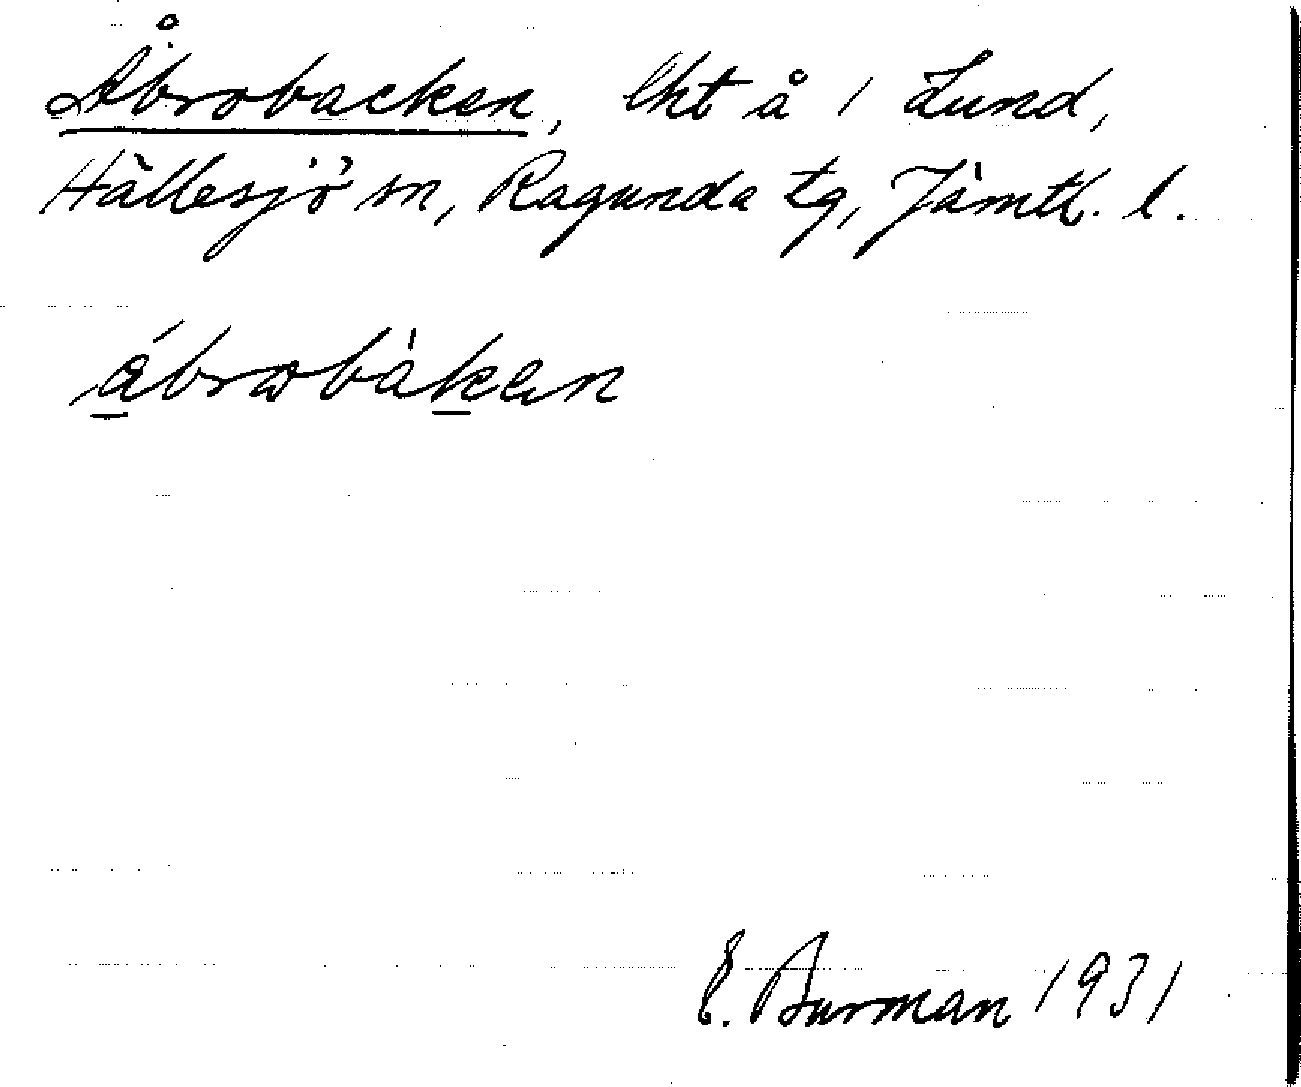 Åbrobacken, lht å i Lund,
Hällesjö sn, Ragunda tg, Jämtl. l.
ábrωbàken
E. Burman 1931